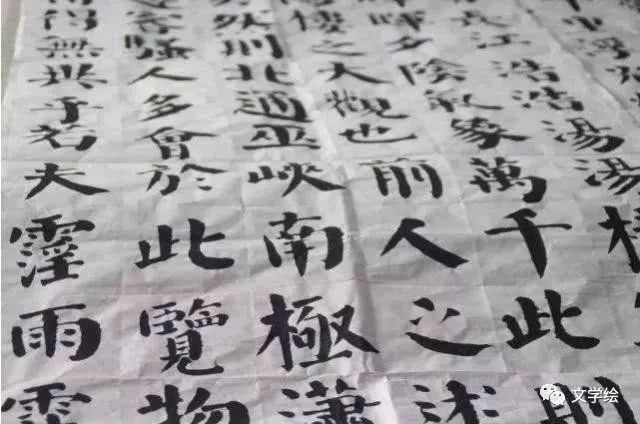 長江浩浩湯湯
暉夕陰氣象萬千此則
樓之大觀也前人之述
然則北通巫峽南極瀟
客騷人多會於此覽物
得無異乎若夫霪雨霏
文学绘